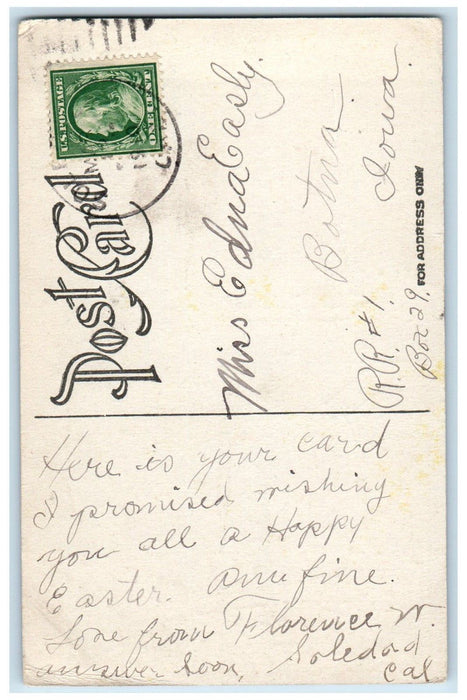 U.S. POSTAGE
ONE CENT
Post Card
FOR ADDRESS ONLY
Miss Edna Easly.
Botna
Iowa.
R.R. #1.
Box 29.
Here is your card
I promised wishing
you all a Happy
Easter. fine.
Love from Florence W.
answer soon, Soledad
Cal